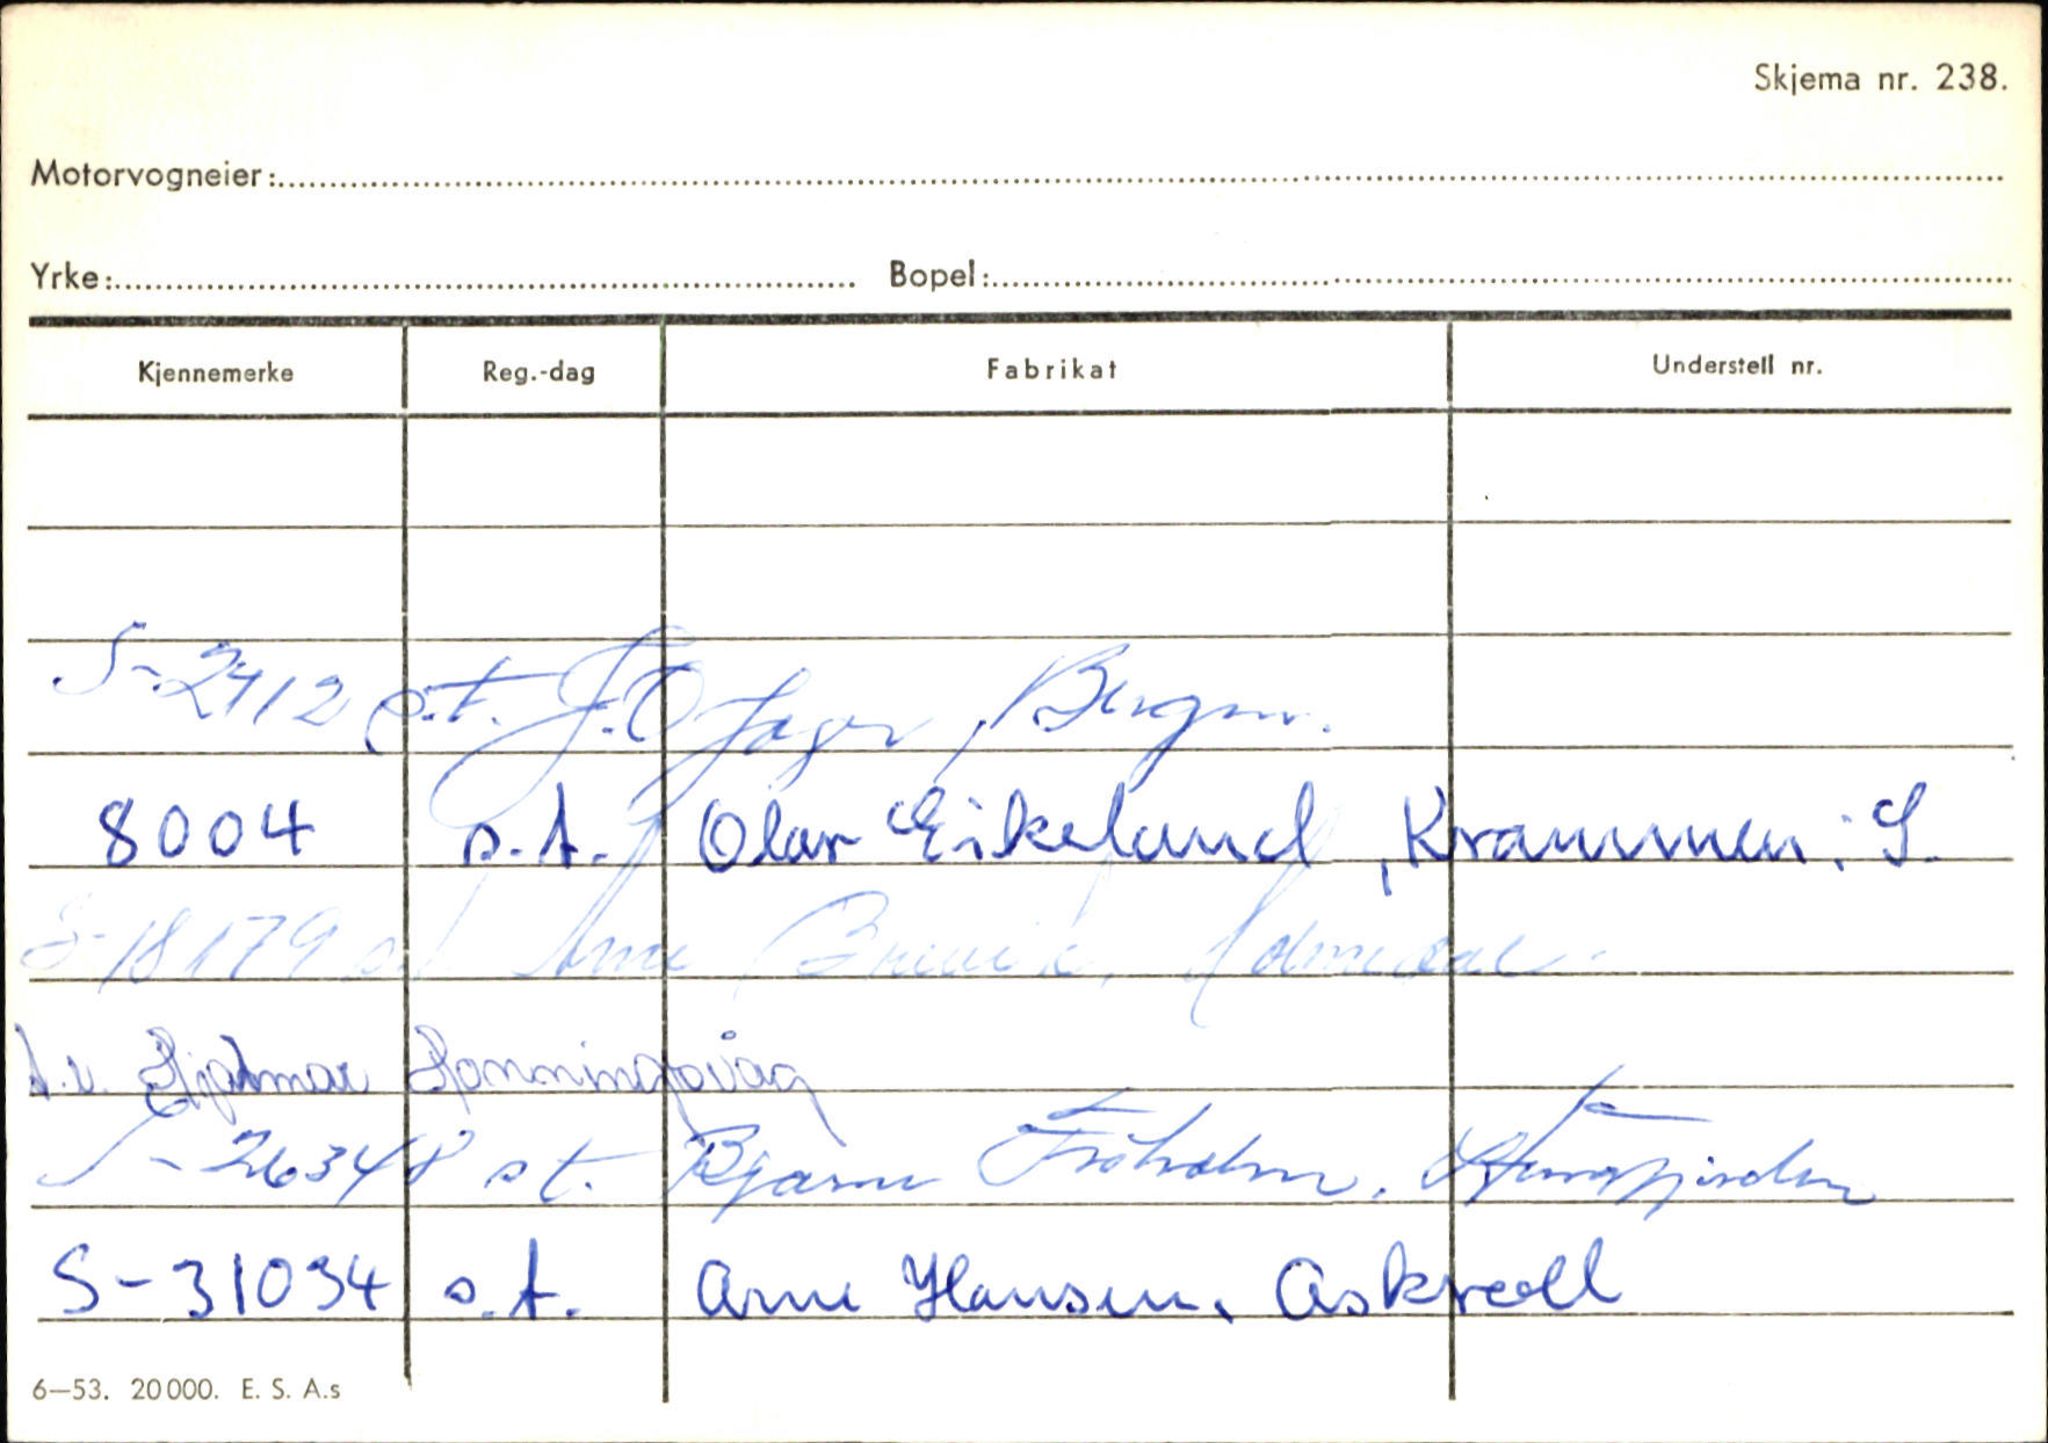 Skjema nr. 238.
Motorvogneier:
Yrke: Bopel:
Kjennemerke Reg.-dag Fabrikat Understell nr.
S-2412 s.t. J.O.
8004 s.t. Olav Eikeland, Krammen, S.
S-18179 s.t Arne Brevik, Holmedal.
Hjalmar Honningsvåg
S-26348 st. Bjarne Fröholm, Stongfjorden
S-31034 s.t. Arne Hansen, Askvoll
6—53. 20000. E. S. A.s